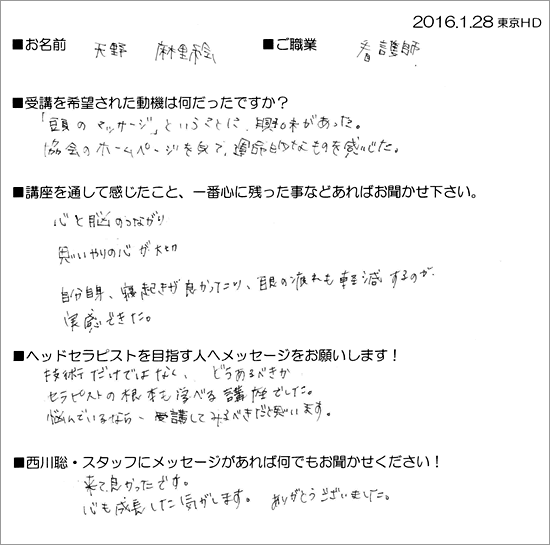 2016.1.28 東京HD
■お名前 天野 麻里絵 ■ご職業 看護師
■受講を希望された動機は何だったですか？
「頭のマッサージ」ということに、興味があった。
協会のホームページを見て、運命的なものを感じた。
■講座を通して感じたこと、一番心に残った事などあればお聞かせ下さい。
心と脳のつながり
思いやりの心が大切
自分自身、寝起きが良かったり、目の疲れも軽減するのが
実感できた。
■ヘッドセラピストを目指す人へメッセージをお願いします！
技術だけではなく、どうあるべきか
セラピストの根本も学べる講座でした。
悩んでいるなら、受講してみるべきだと思います。
■西川聡・スタッフにメッセージがあれば何でもお聞かせください！
来て良かったです。
心も成長した気がします。 ありがとうございました。